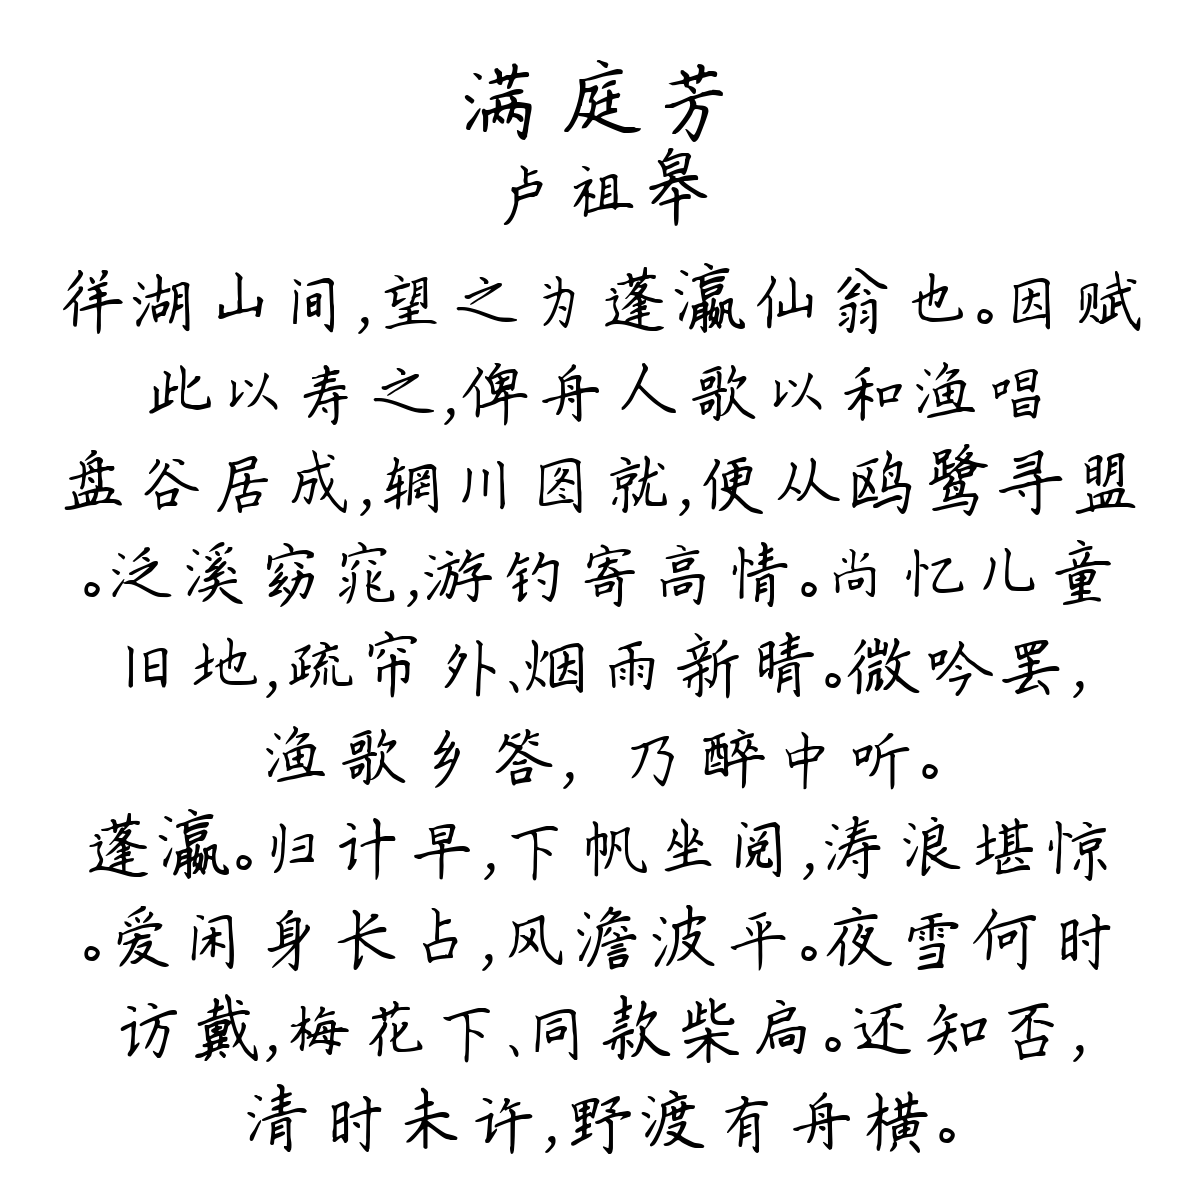 满庭芳
卢祖皋
徉湖山间,望之为蓬瀛仙翁也。因赋
此以寿之,俾舟人歌以和渔唱
盘谷居成,辋川图就,便从鸥鹭寻盟
。泛溪窈窕,游钓寄高情。尚忆儿童
旧地,疏帘外、烟雨新晴。微吟罢,
渔歌乡答，乃醉中听。
蓬瀛。归计早,下帆坐阅,涛浪堪惊
。爱闲身长占,风澹波平。夜雪何时
访戴,梅花下、同款柴扃。还知否,
清时未许,野渡有舟横。